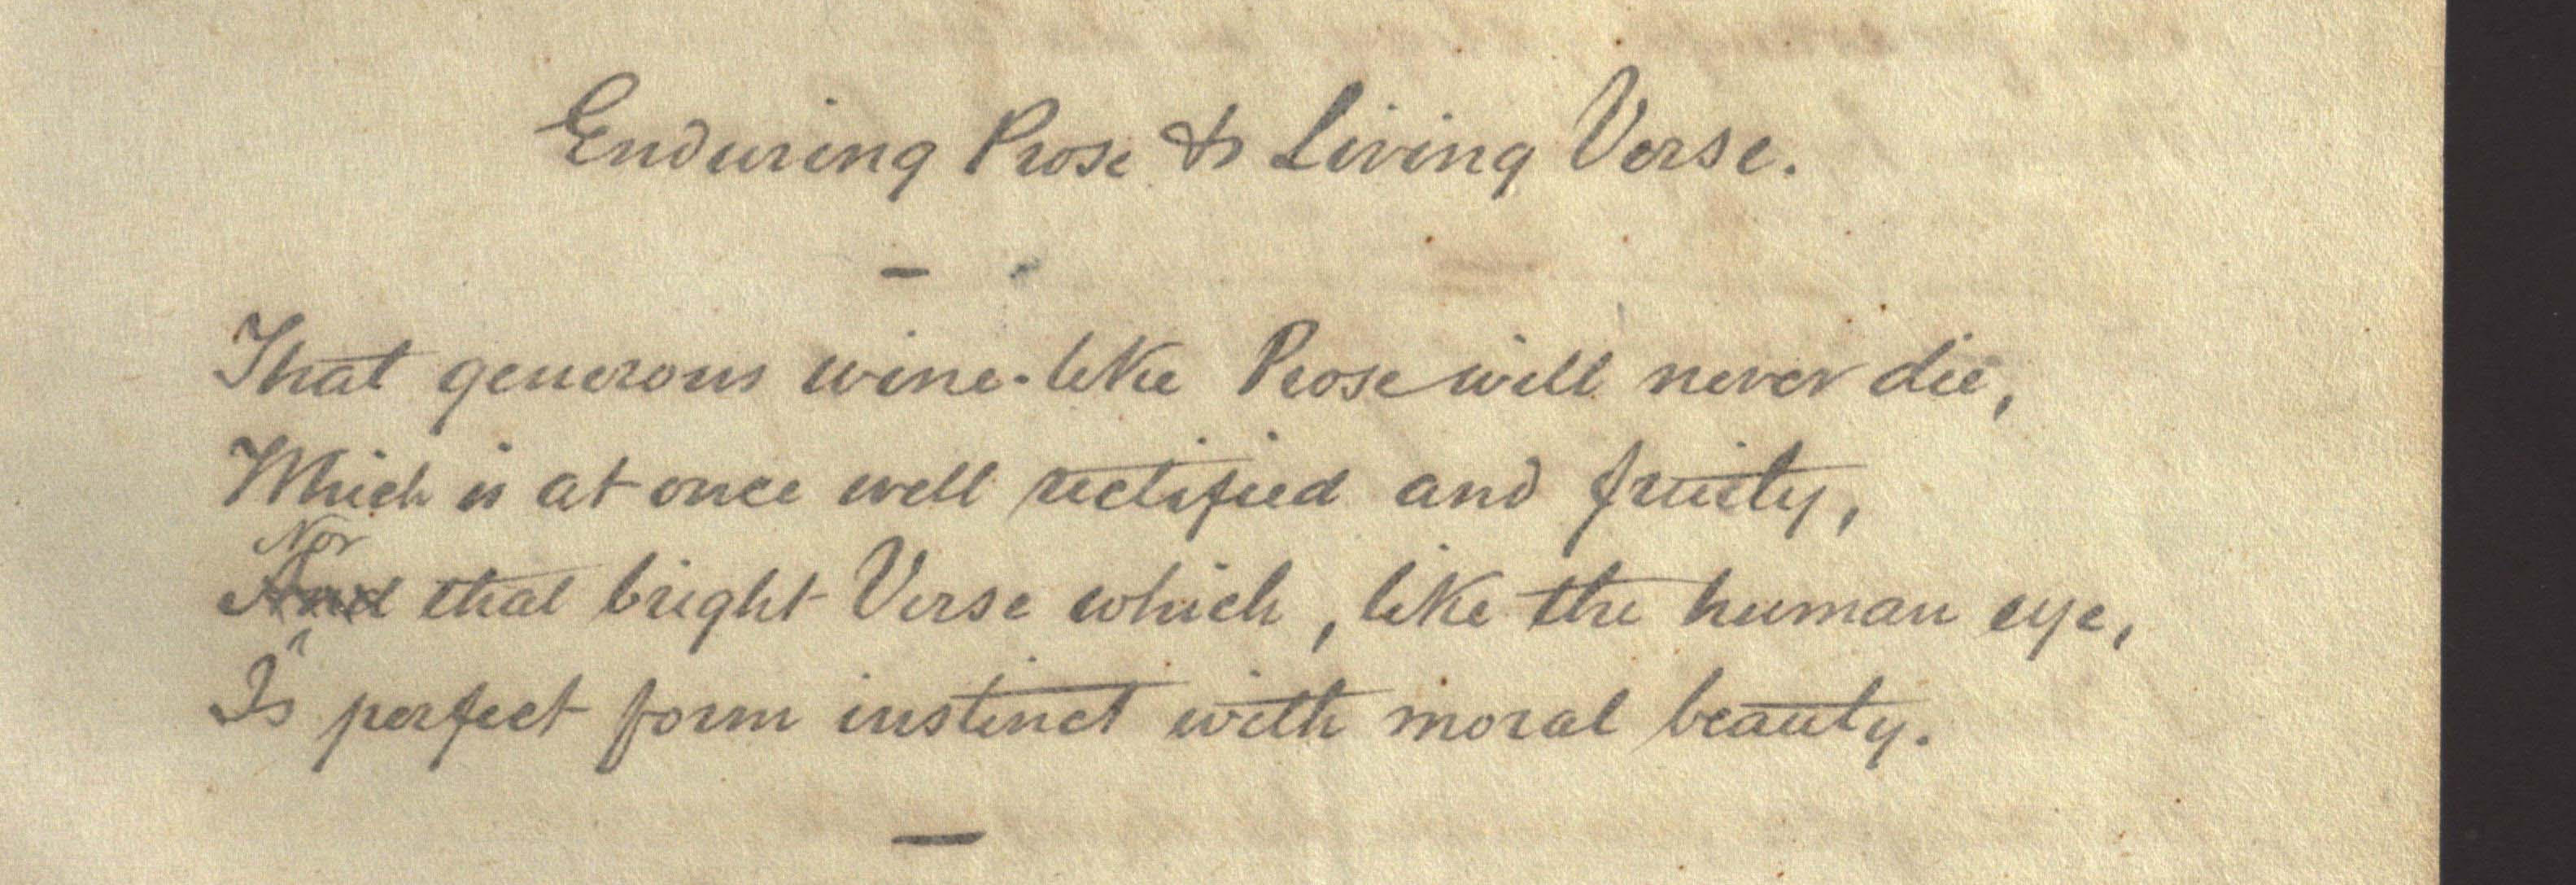 Enduring Prose & Living Verse.
That generous wine-like Prose will never die,
Which is at once well rectified and fruity,
Nor
And that bright Verse which, like the human eye,
Is perfect form instinct with moral beauty.